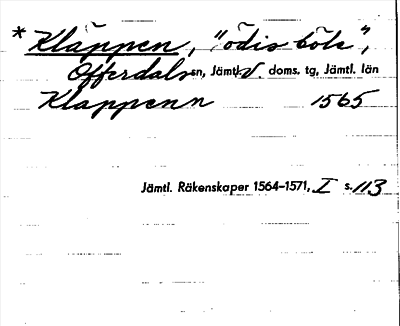 * Kläppen, "ödis böle",
Offerdals sn, Jämtl. v. doms. tg, Jämtl. län
Klappenn 1565
Jämtl. Räkenskaper 1564–1571, I s. 113